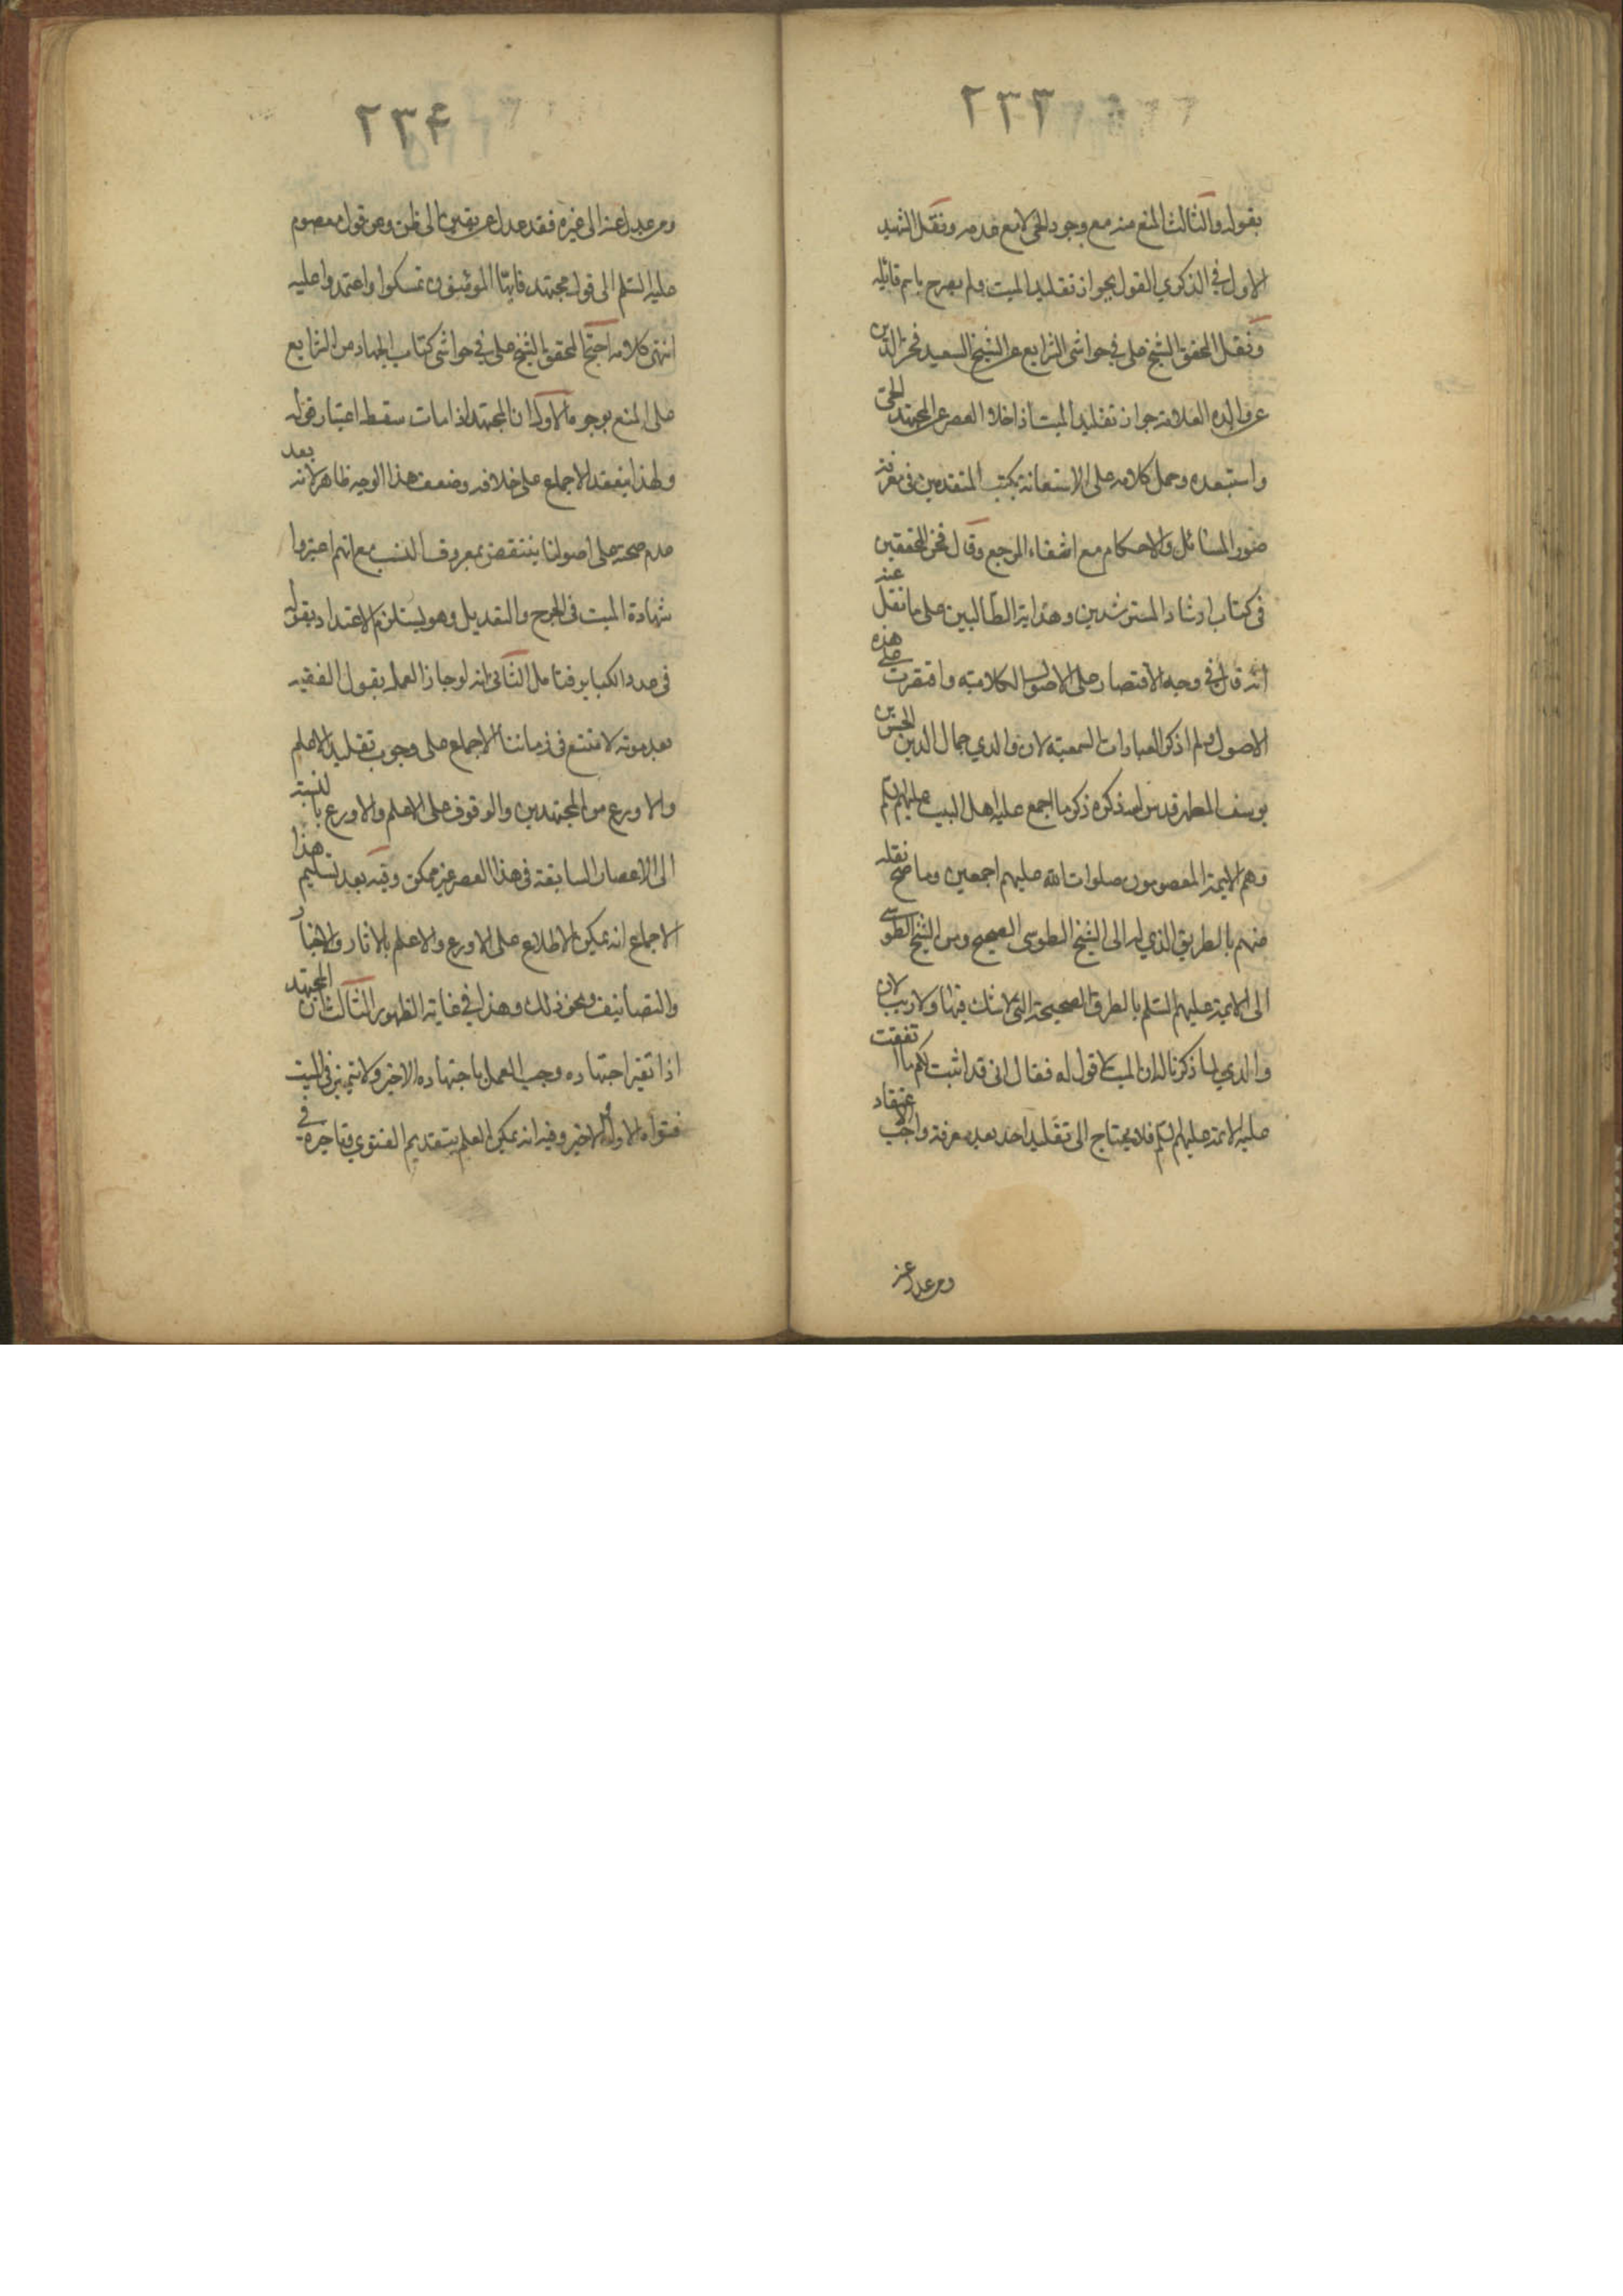 ٢٣٣
بقوله والثالث المنع منه مع وجود الحي لا مع عدمه ونقل الشهيد
الاول في الذكرى القول بجواز تقليد الميت ولم يصرح باسم قائله
ونقل المحقق الشيخ علي في حواشي الشرايع عن الشيخ السعيد فخر الدين
عن والده العلامة جواز تقليد الميت اذا خلا العصر عن المجتهد الحي
واستبعده وحمل كلامه على الاستعانة بكتب المتقدمين في معرفة
صور المسائل والاحكام مع انتفاء المرجع وقال فخر المحققين
في كتاب ارشاد المسترشدين وهداية الطالبين على ما نقل عنه
انه قال في وجه الاقتصار على الاصول الكلامية واقتصرت على هذه
الاصول ولم اذكر العبادات السمعية لان والدي جمال الدين الحسن بن
يوسف المطهر قدس الله ذكره ذكر ما اجمع عليه اهل البيت عليهم السلم
وهم الايمة المعصومون صلوات الله عليهم اجمعين وما صح نقله
عنهم بالطريق الذي له الى الشيخ الطوسي الصحيح ومن الشيخ الطوسي
الى الايمة عليهم السلم بالطرق الصحيحة التي لا شك فيها ولا ريب لان
والدي لما ذكرنا له ان الميت لا قول له فقال اني قد اثبت لكم ما اتفقت
عليه الائمة عليهم السلم فلا يحتاج الى تقليد احد بعد معرفة واجب الاعتقاد
ومن عدل عنه
٢٣۴
ومن عدل عنه الى غيره فقد عدل عن يقين الى ظن وعن قول معصوم
عليه السلم الى قول مجتهد فايها المؤمنون تمسكوا واعتمدوا عليه
انتهى كلامه احتج المحقق الشيخ علي في حواشي كتاب الجهاد من الشرايع
على المنع بوجوه الاول ان المجتهد اذا مات سقط اعتبار قوله
ولهذا ينعقد الاجماع على خلافه وضعف هذا الوجه ظاهر لانه بعد
عدم صحته على اصولنا ينتقض بمعروف النسب مع انهم اعتبروا
شهادة الميت في الجرح والتعديل وهو يستلزم الاعتداد بقوله
في عدد الكباير فتامل الثاني انه لو جاز العمل بقول الفقيه
بعد موته لامتنع في زماننا الاجماع على وجوب تقليد الاعلم
والاورع من المجتهدين والوقوف على الاعلم والاورع بالنسبة
الى الاعصار السابقة في هذا العصر غير ممكن وفيه بعد تسليم هذا
الاجماع انه يمكن الاطلاع على الاورع والاعلم بالاثار والاخبار
والتصانيف ونحو ذلك وهذا في غاية الظهور الثالث ان المجتهد
اذا تغير اجتهاده وجب العمل باجتهاده الاخير ولا يتميز في الميت
فتواه الاول والاخير وفيه انه يمكن العلم بتقديم الفتوى وتاخيره في